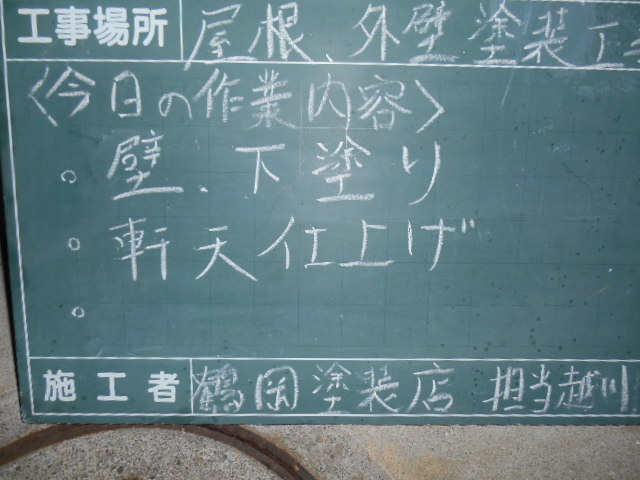 工事場所 屋根、外壁塗装工
<今日の作業内容>
。壁.下塗り
。軒天仕上げ
。
施工者 鶴岡塗装店 担当越川